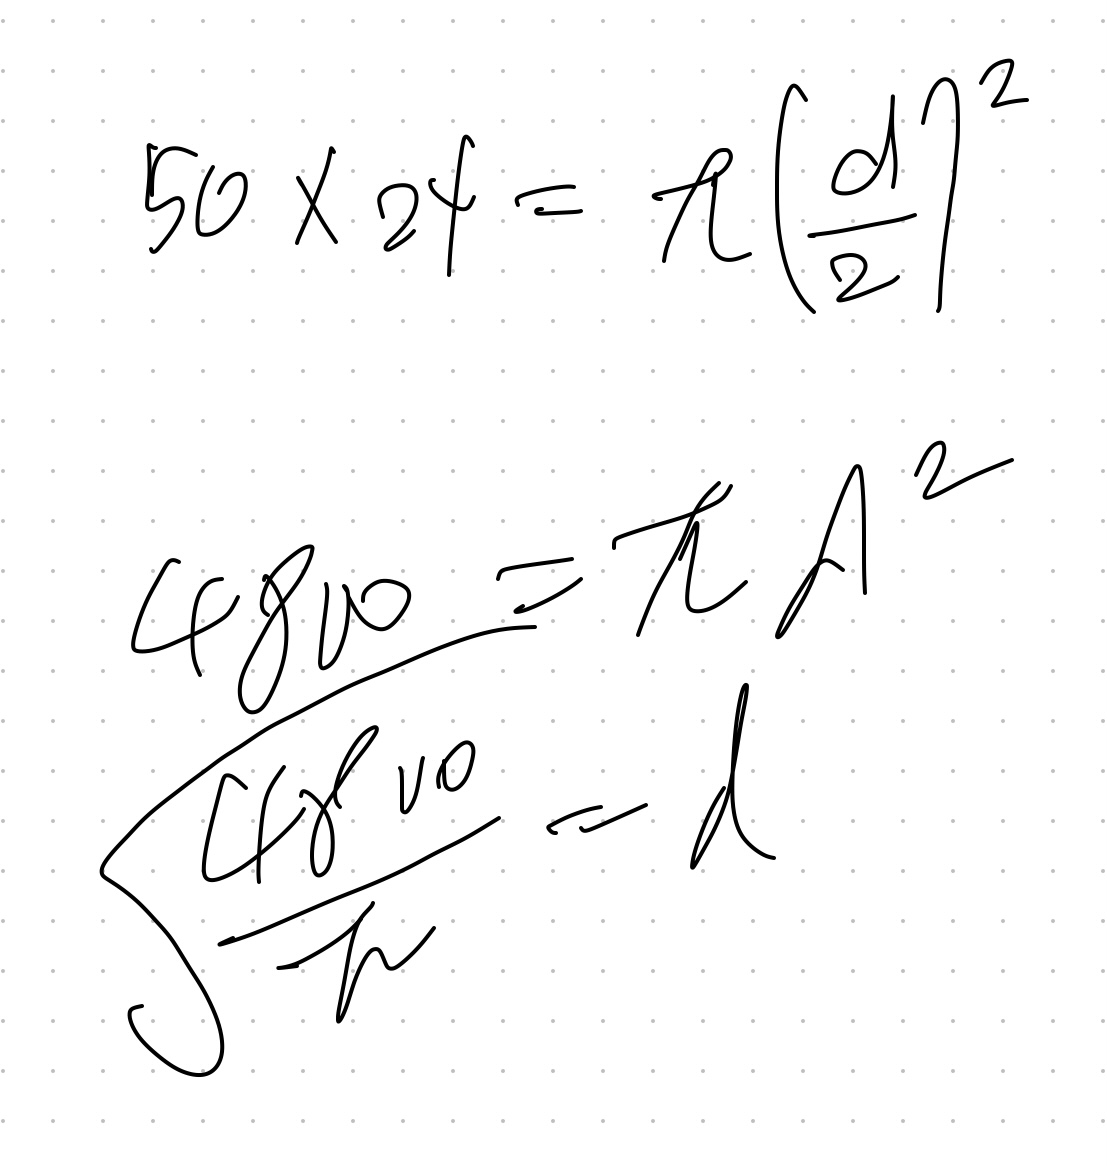 50 × 24 = π(d/2)²
4800 = πd²
√(4800/π) = d